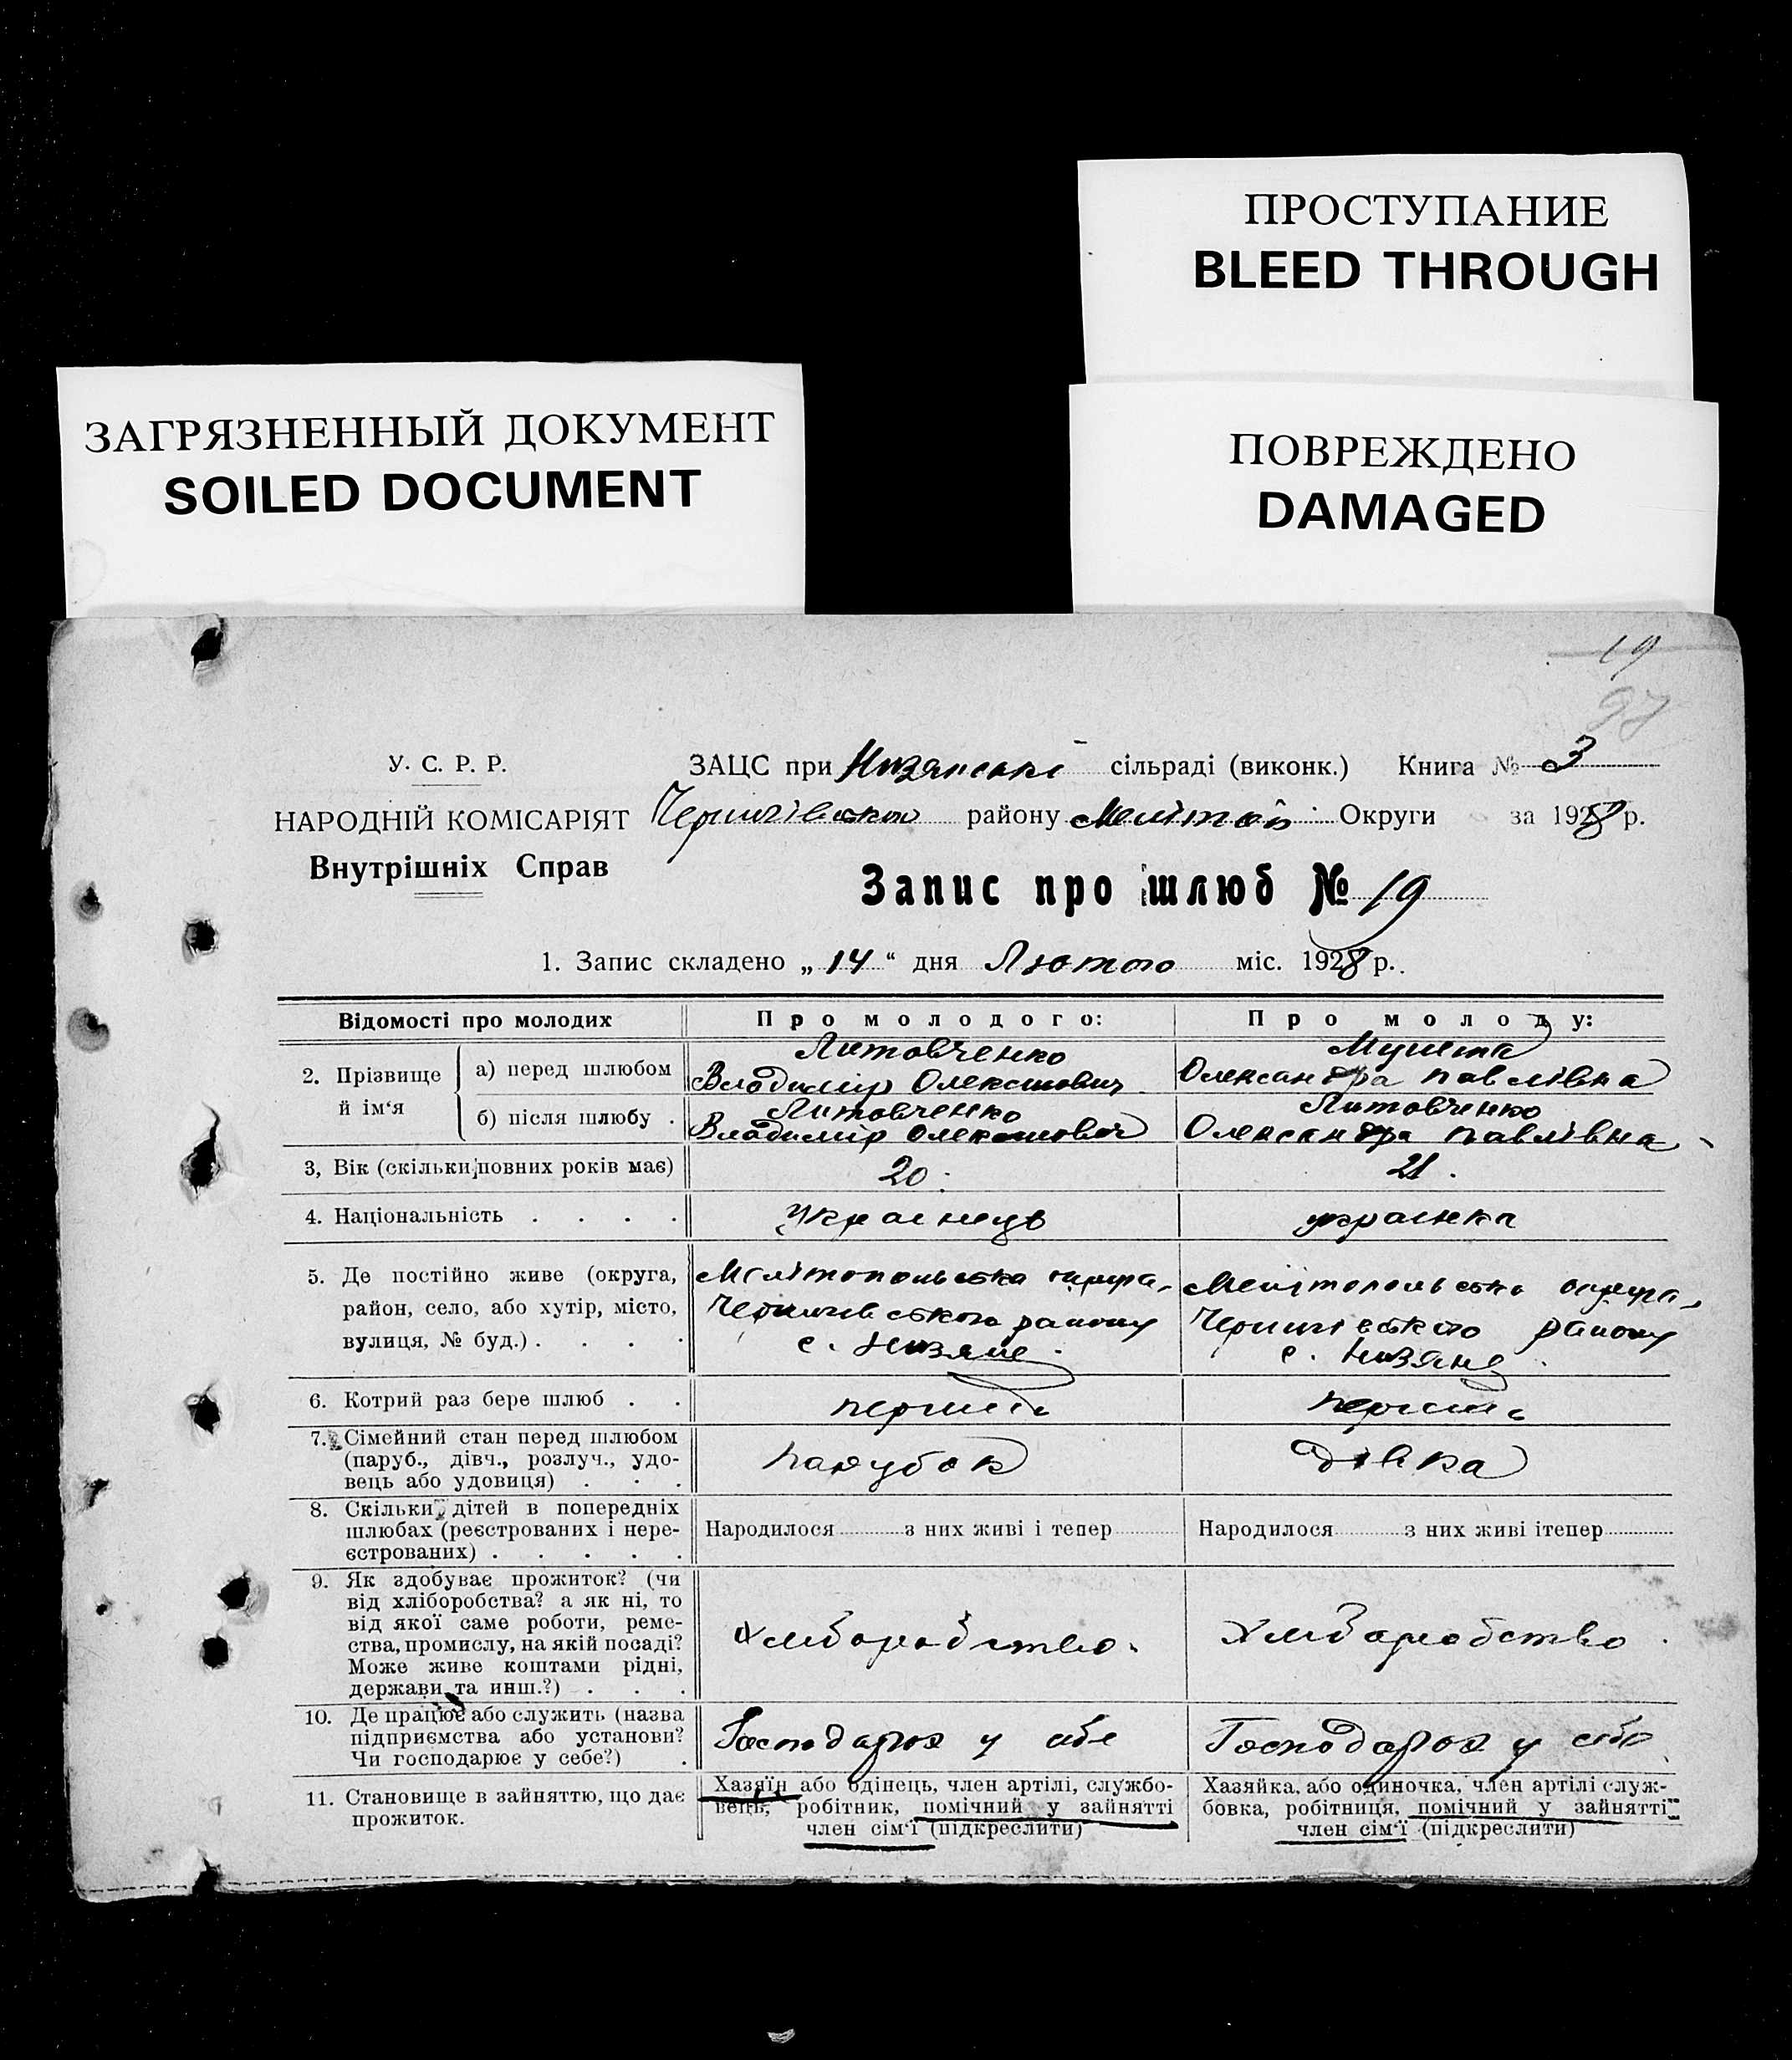 ПРОСТУПАНИЕ
BLEED THROUGH
ЗАГРЯЗНЕННЫЙ ДОКУМЕНТ
SOILED DOCUMENT
ПОВРЕЖДЕНО
DAMAGED
19
97
У. С. Р. Р.
НАРОДНІЙ КОМІСАРІЯТ
Внутрішніх Справ
ЗАЦС при Низянські сільраді (виконк.) Книга № 3
Чернигівського району Мелітоп. Округи за 1928 р.
Запис про шлюб № 19
1. Запис складено „ 14 “ дня Лютого міс. 1928 р.
Відомості про молодих
Про молодого:
Про молоду:
2. Прізвище й ім‘я
а) перед шлюбом
Литовченко
Владимір Олексійович
Олександра Павлівна
б) після шлюбу .
Литовченко
Владимір Олексійович
Литовченко
Олександра Павлівна
3, Вік (скільки повних років має)
20.
21.
4. Національність . . . .
Українець
українка
5. Де постійно живе (округа,
район, село, або хутір, місто,
вулиця, № буд.) . . . .
Мелітопольська округа,
Чернигівського району
с. Низяне.
Мелітопольська округа,
Чернигівського району
с. Низяне.
6. Котрий раз бере шлюб . .
перший
перший
7. Сімейний стан перед шлюбом
(паруб., дівч., розлуч., удо-
вець або удовиця) . . .
парубок
дівка
8. Скільки дітей в попередніх
шлюбах (реєстрованих і нере-
єстрованих) . . . . .
Народилося з них живі і тепер
Народилося з них живі ітепер
9. Як здобуває прожиток? (чи
від хліборобства? а як ні, то
від якої саме роботи, реме-
ства, промислу, на якій посаді?
Може живе коштами рідні,
держави та инш.?) . . .
Хліборобство.
Хліборобство.
10. Де працює або служить (назва
підприємства або установи?
Чи господарює у себе?) .
Господарює у себе
Господарює у себе
11. Становище в зайняттю, що дає
прожиток.
Хазяїн або одінець, член артілі, службо-
вець, робітник, помічний у зайнятті
член сім‘ї (підкреслити)
Хазяйка, або одиночка, член артілі служ-
бовка, робітниця, помічний у зайнятті
член сім‘ї (підкреслити)